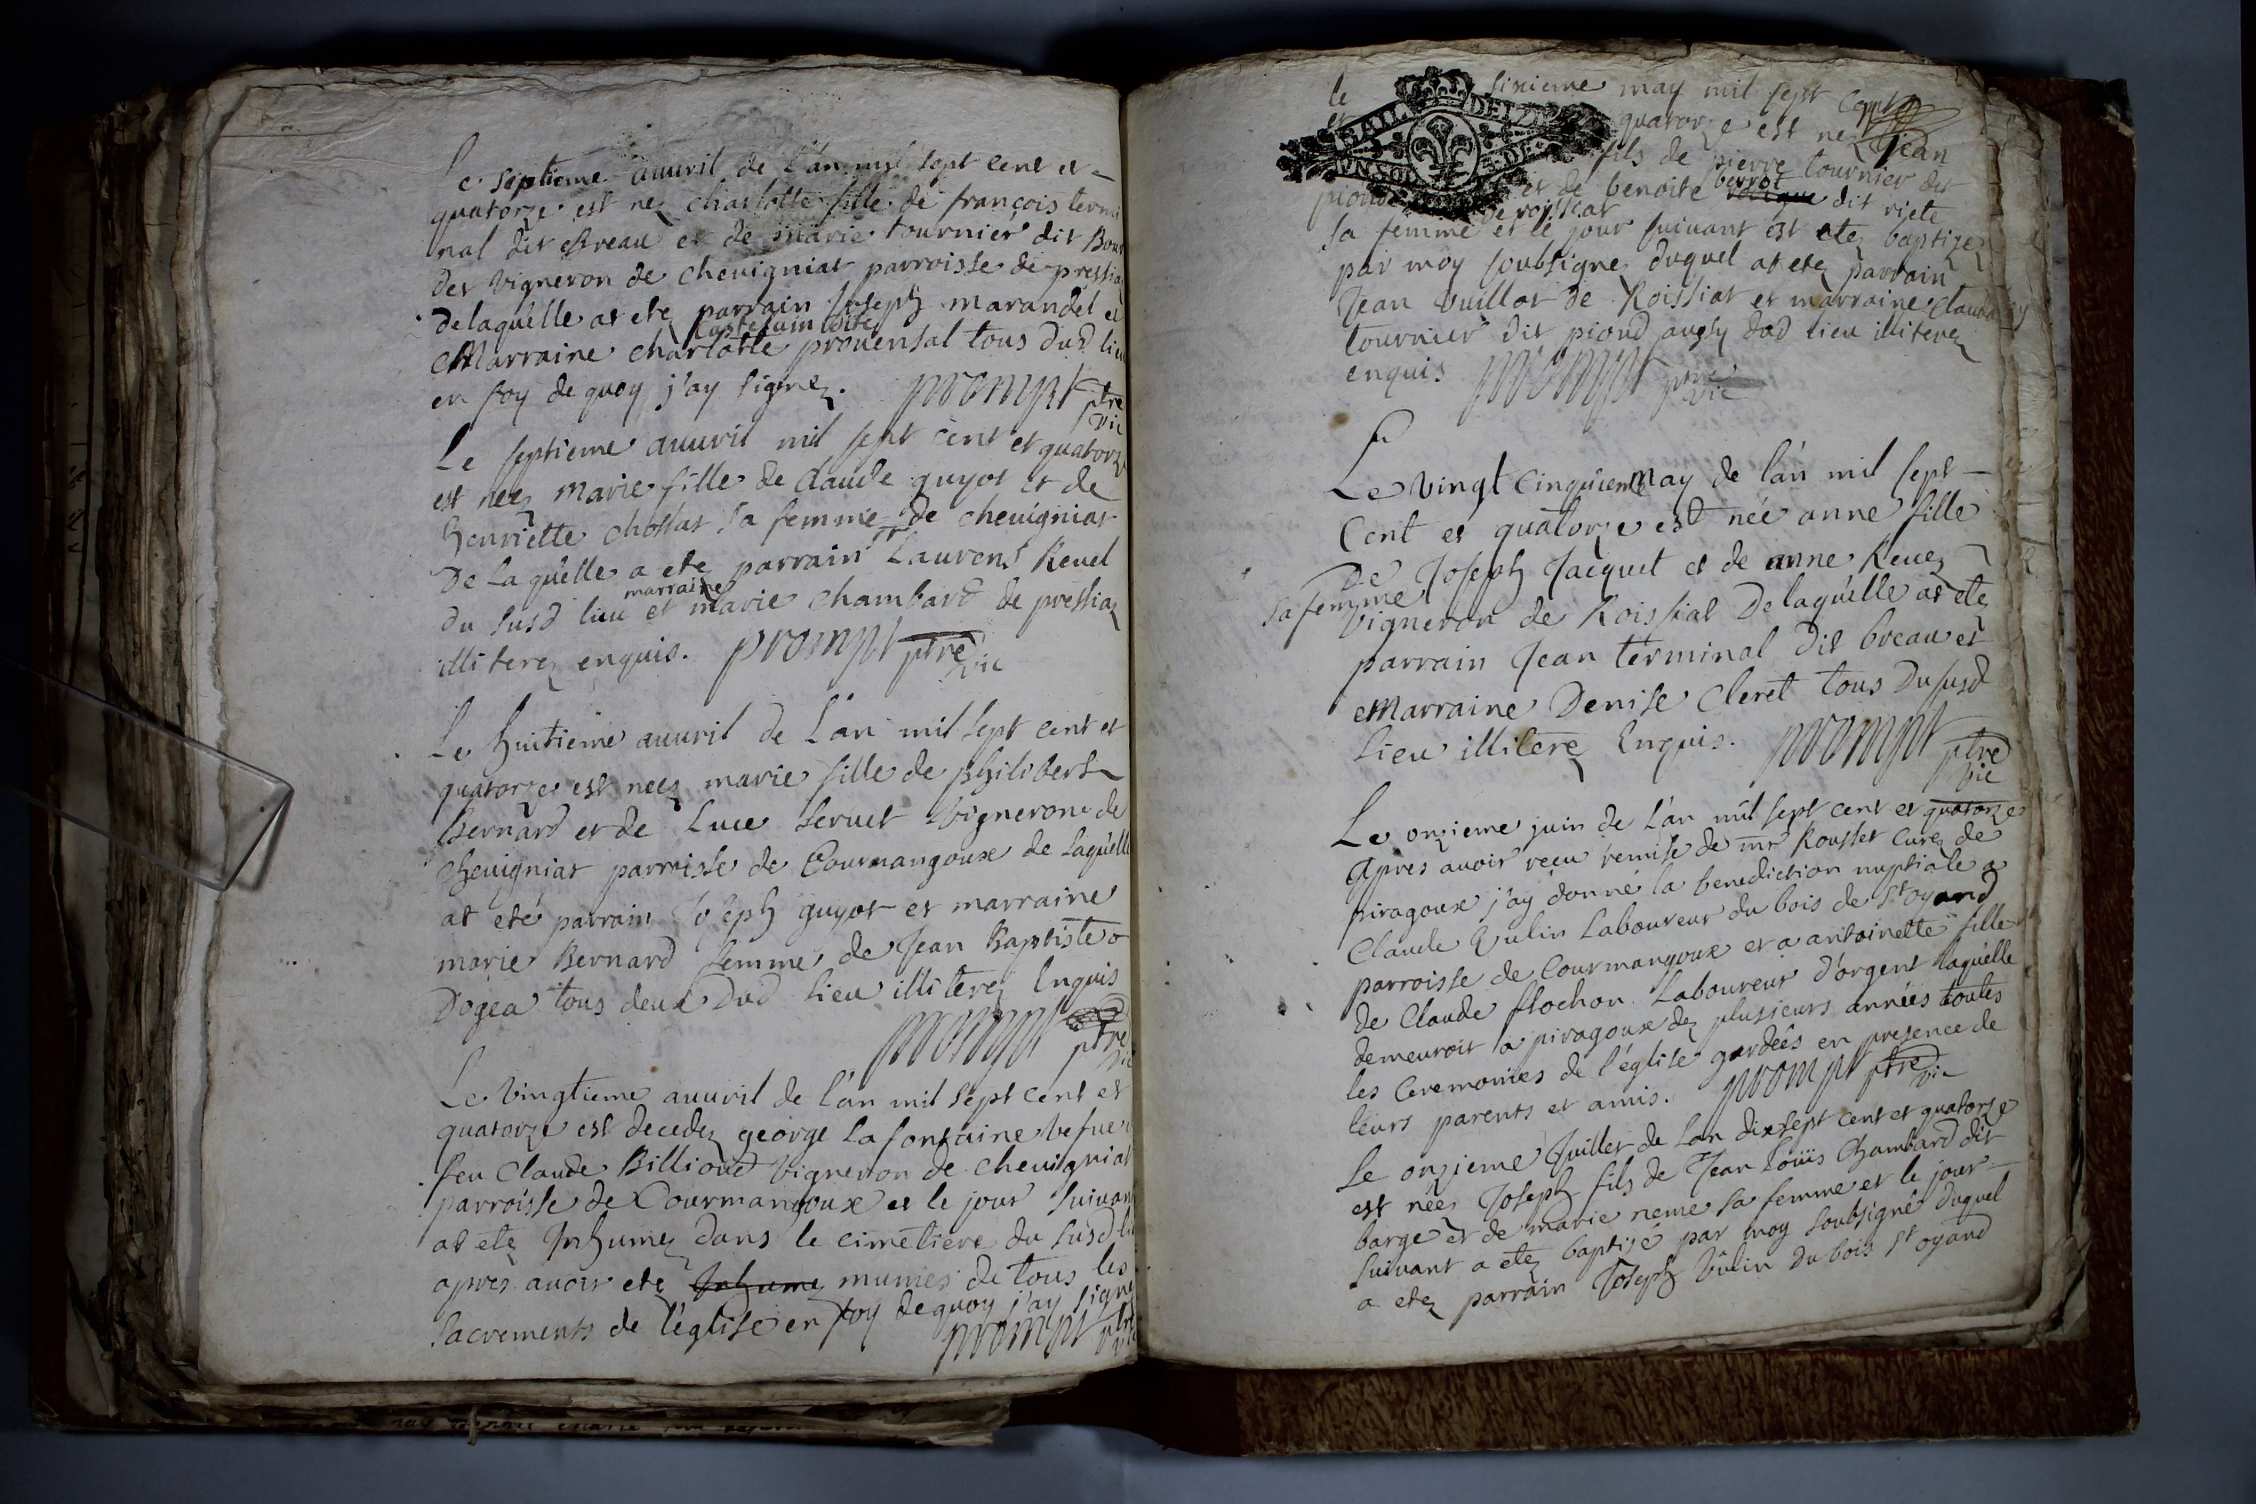 Le septieme auuril de l'an mil sept cent et
quatorze est nez charlotte fille de françois termi
nal dit Breau et de marie tournier dit Bour
det vigneron de cheuigniat parroisse de pressiaz
delaquelle at etez parrain Joseph marandet et
Castelain dite
Marraine charlotte prouensal tous dud lieu
en foy de quoy j'ay signez. prompt ptre
vic
Le septieme auuril mil sept cent et quatorze
est neez marie fille de Claude guyot et de
henriette chossat sa femme de cheuigniat
De laquelle a ete parrain Laurent Reuel
marraine
du susd lieu et marie chambard de pressiaz
illiterez enquis. prompt ptre
vic
Le huitieme auuril de L'an mil sept cent et
quatorze est neez marie fille de philibert
Bernard et de Luce seruet vigneron de
cheuigniat parroisse de Courmangoux de laquelle
at eté parrain Joseph guyot et marraine
marie Bernard femme de Jean Baptiste
Dogea tous deux Dud lieu illiterez Enquis
prompt ptre
vic
Le vingtieme auuril de l'an mil sept cent et
quatorze est decedez george lafontaine vefue
feu Claude Billioud vigneron de cheuigniat
parroisse de Courmangoux et le jour suiuant
at etez Inhumez dans le cimetiere du susd lieu
apres auoir etez Inhumez munies de tous les
sacrements de l'église en foy de quoy j'ay signe
prompt ptre
vic
le sixieme may mil sept Cent
et quatorze est nez Jean
fils de pierre tournier dit
berrod
pioud et de benoite dit riete
De roissiat
sa femme et le jour suiuant est etez baptizez
par moy soubsignez duquel at etez parrain
Jean vuillot de Roissiat et marraine Claud
tournier dit pioud aussy dud lieu illiterez
enquis prompt ptre
vic
Le vingt cinquieme May de l'an mil sept
Cent et quatorze est née anne fille
De Joseph Jacquet et de anne Reuez
sa femme
vigneron de Roissiat De laquelle at etez
parrain Jean terminal Dit breau et
Marraine Denise Cleret tous Du susd
Lieu illiterez Enquis. prompt ptre
vic
Le onzieme juin de L'an mil sept cent et quatorze
Apres auoir reçu remise de mr Rousset curez de
piragoux j'ay donné la benediction nuptiale a
Claude Vulin Laboureur du bois de st oyand
parroisse de Courmangoux et a antoinette fille
de Claude flochon Laboureur d'orgent laquelle
demeuroit a piragoux dez plusieurs années toutes
les Ceremonies de l'église gardées en presence de
leurs parents et amis. prompt ptre
vic
Le onzieme Juillet de Lan dixsept cent et quatorze
est néez Joseph fils de Jean Loüis Chambard dit
barge et de marie neme sa femme et le jour
suiuant a etez baptisé par moy soubsigné duquel
a etez parrain Joseph Vulin du bois st oyand